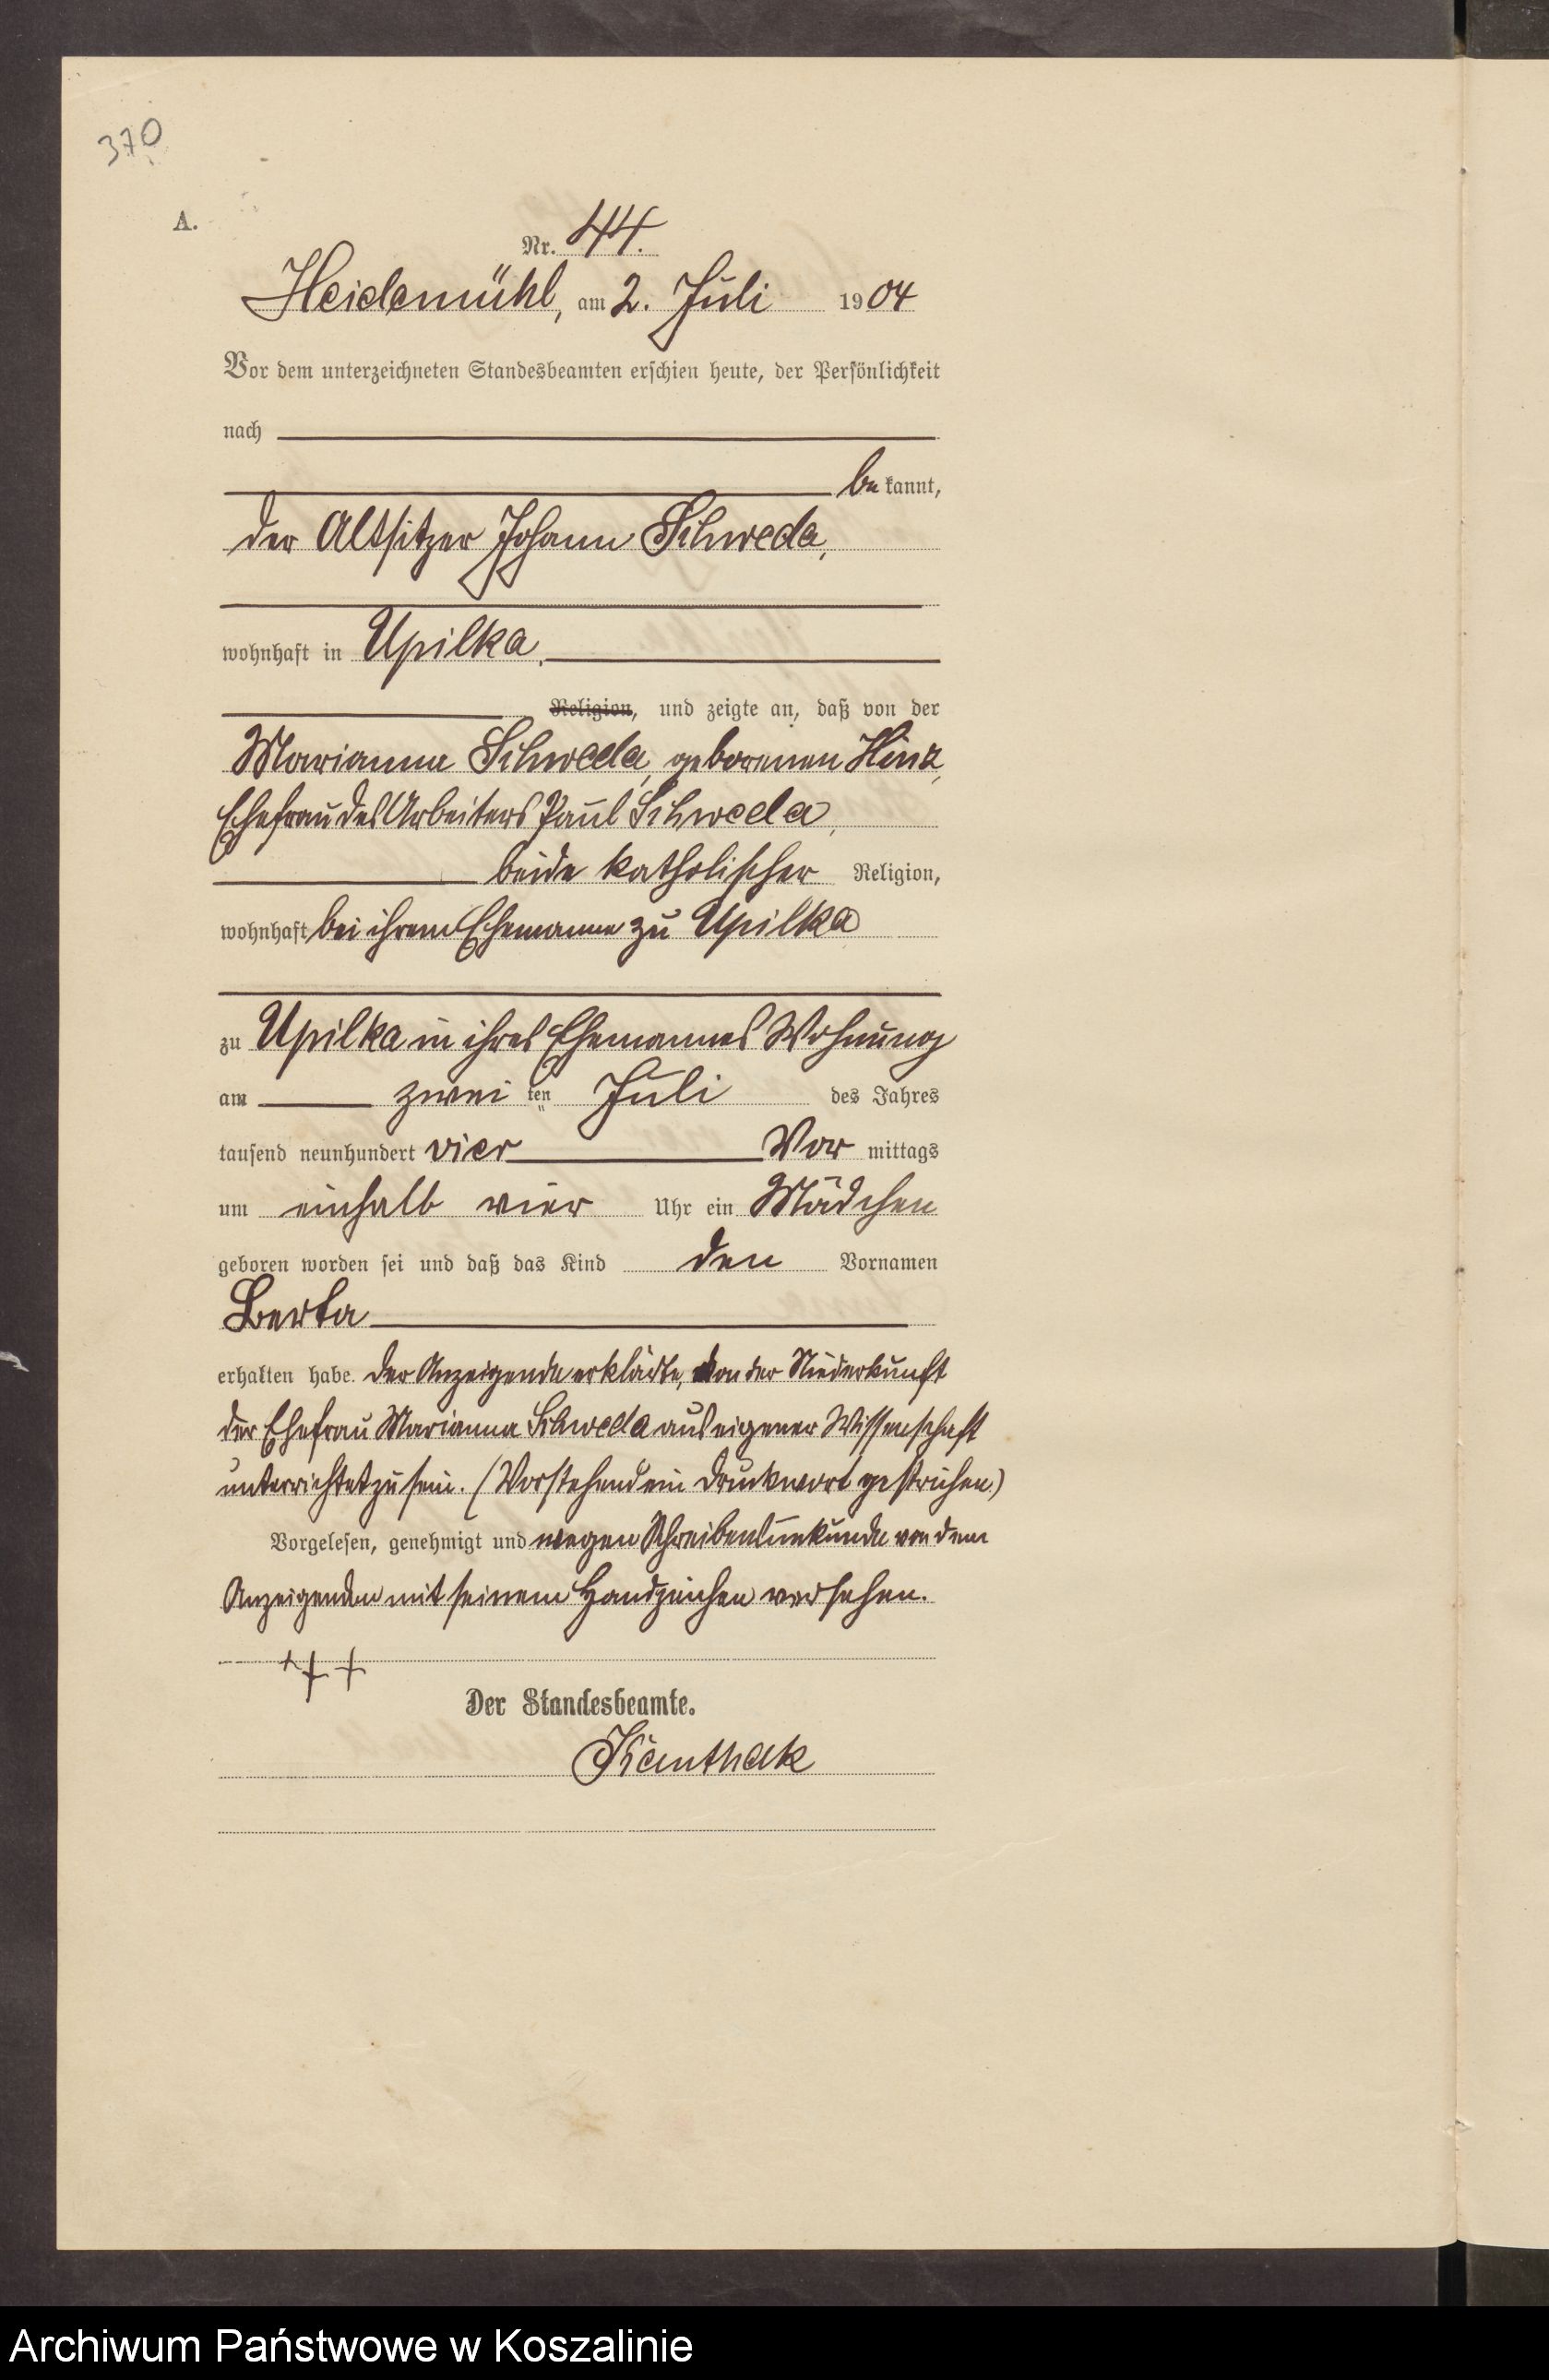 370
A.
Nr. 44.
Heidemühl, am 2. Juli 1904
Vor dem unterzeichneten Standesbeamten erschien heute, der Persönlichkeit
nach
be kannt,
der Altsitzer Johann Schweda,
wohnhaft in Upilka,
Religion, und zeigte an, daß von der
Marianna Schweda, geborenen Hinz,
Ehefrau des Arbeiters Paul Schweda,
beide katholischer Religion,
wohnhaft bei ihrem Ehemanne zu Upilka
zu Upilka in ihres Ehemannes Wohnung
am zwei ten Juli des Jahres
tausend neunhundert vier Vor mittags
um einhalb vier Uhr ein Mädchen
geboren worden sei und daß das Kind den Vornamen
Berta
erhalten habe. Der Anzeigende erklärte, von der Niederkunft
der Ehefrau Marianna Schweda aus eigener Wissenschaft
unterrichtet zu sein. (Vorstehend ein Druckwort gestrichen)
Vorgelesen, genehmigt und wegen Schreibensunkunde von dem
Anzeigenden mit seinem Handzeichen versehen.
+++
Der Standesbeamte.
Kanthak
Archiwum Państwowe w Koszalinie